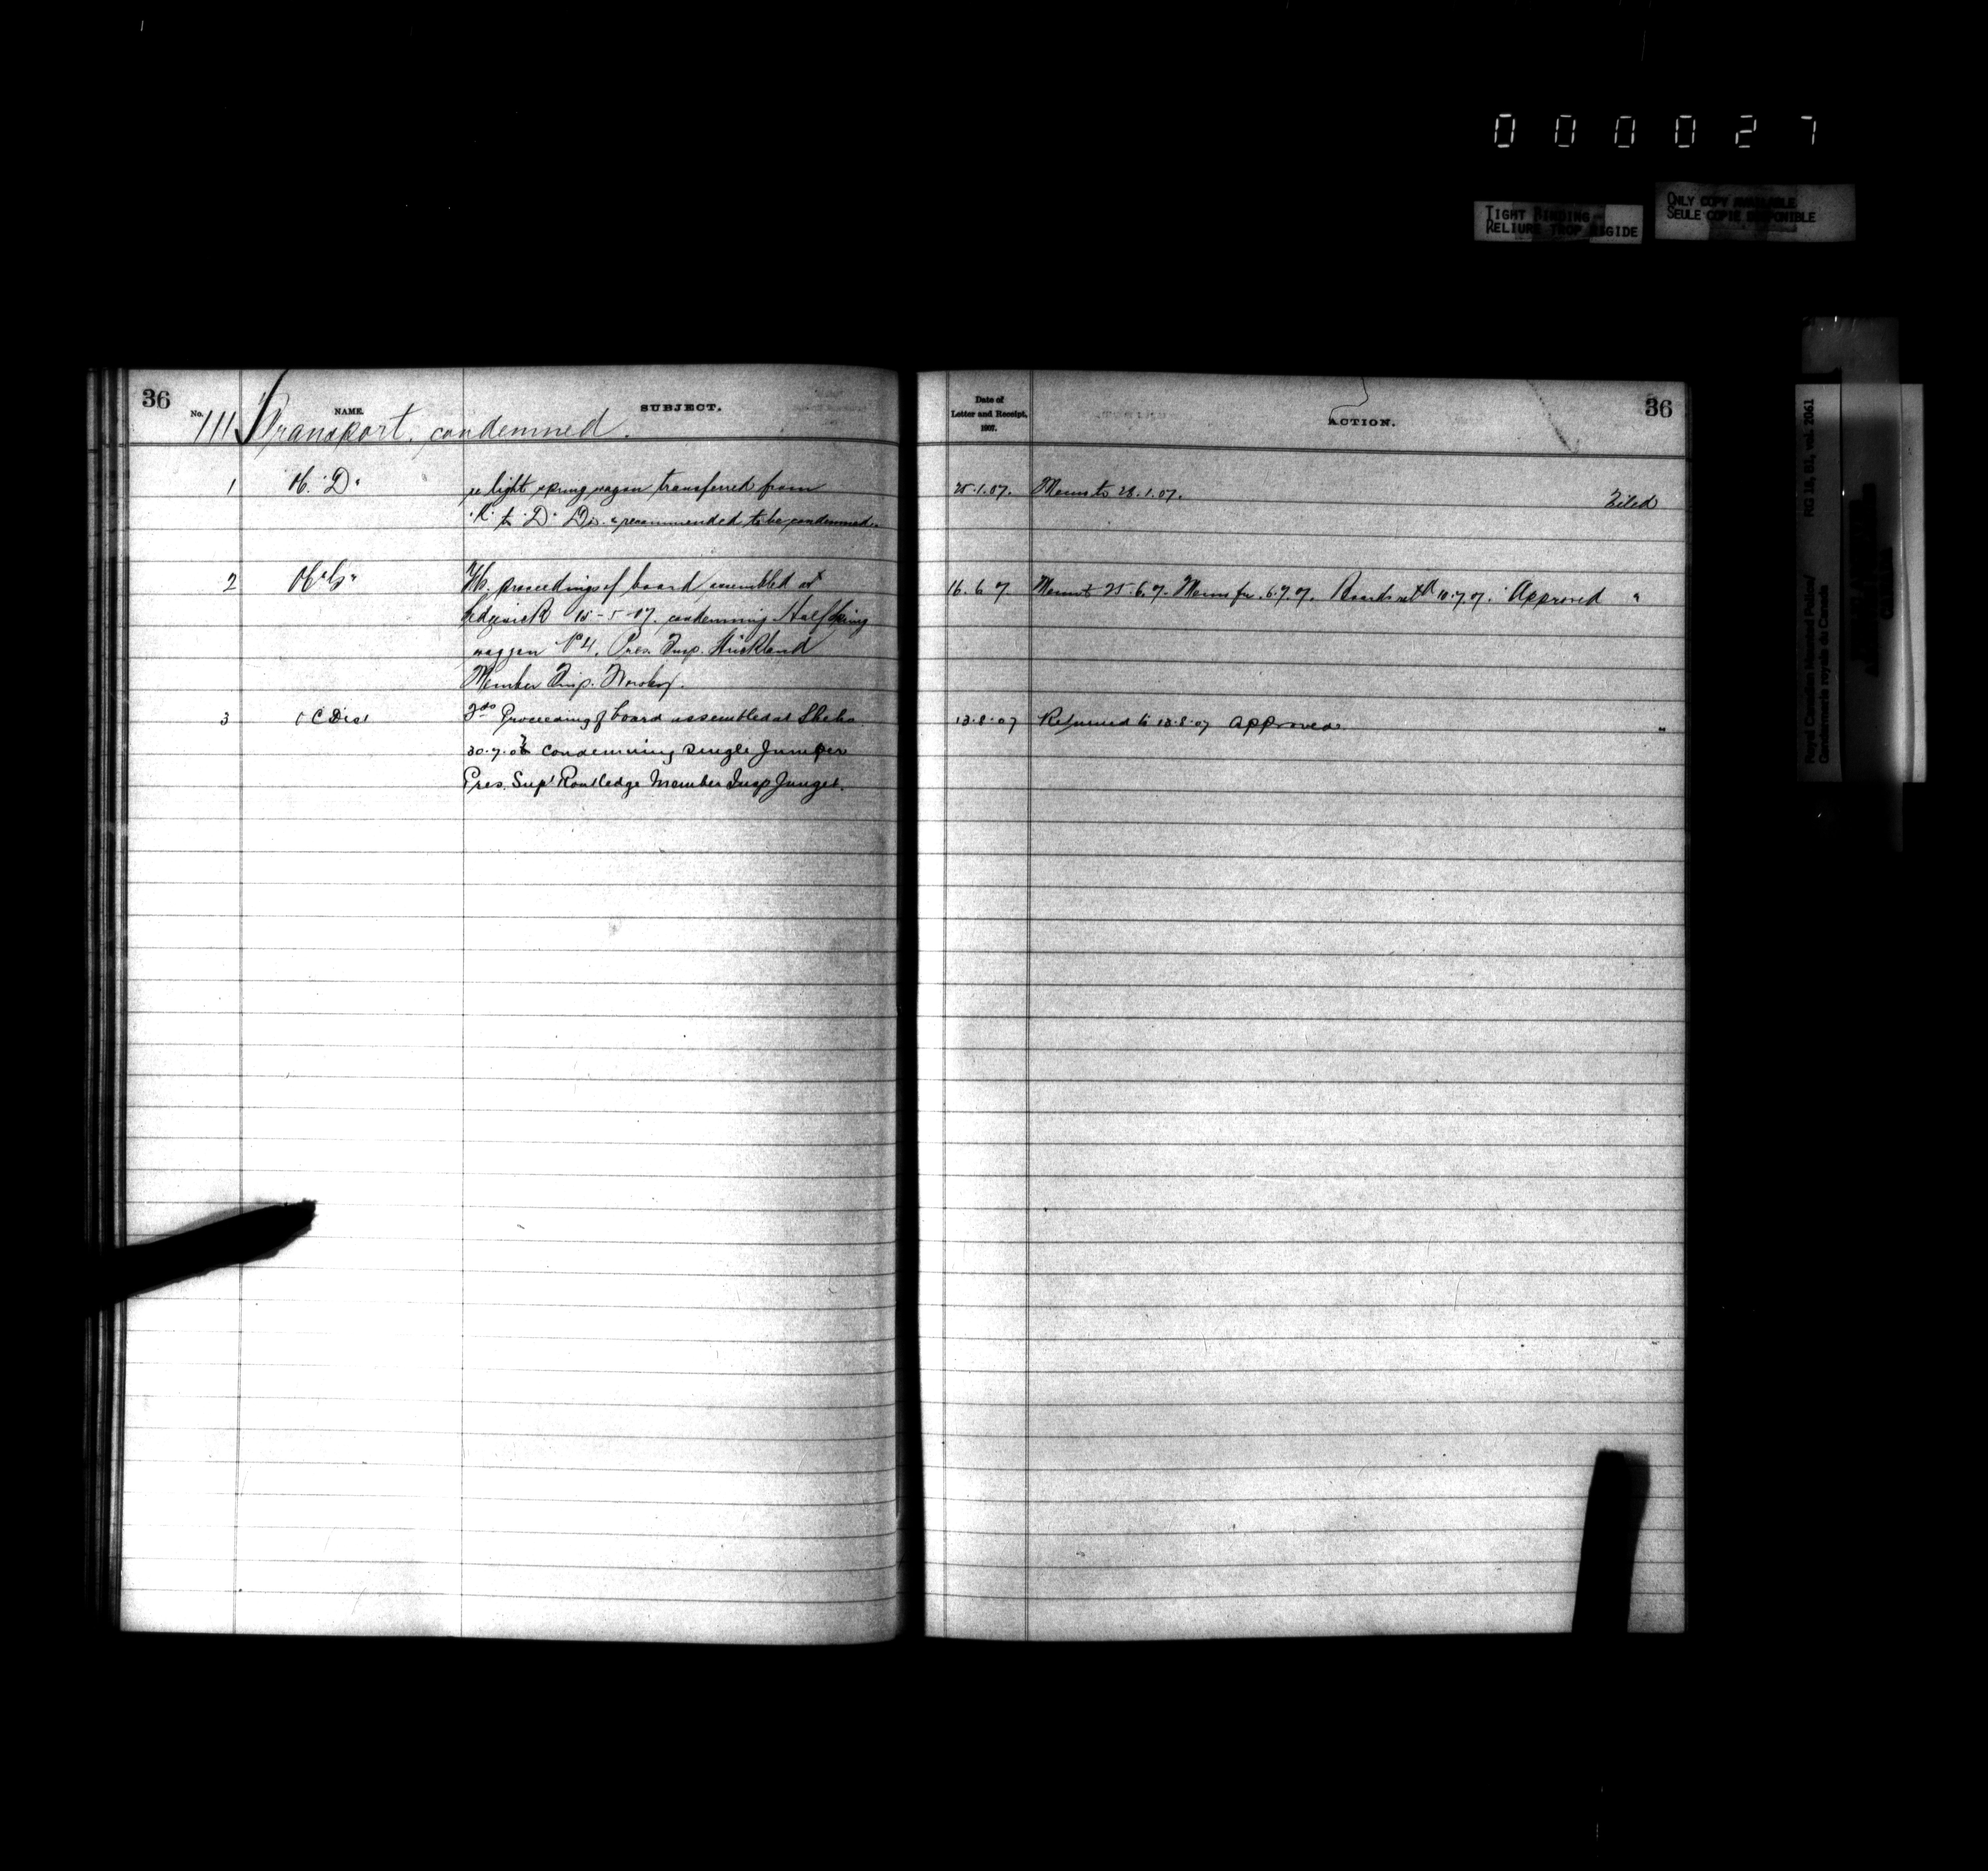 000027
TIGHT BINDING
RELIURE TROP RIGIDE
ONLY COPY AVAILABLE
SEULE COPIE DISPONIBLE
Royal Canadian Mounted Police/
Gendarmerie royale du Canada
RG 18, B1, vol. 2061
36
No. NAME. SUBJECT.
111 Transport, condemned.
1 "D" re light spring wagon transferred from
"K" to "D" Div. & recommended to be condemned.
2 proceedings of board assembled at
15-5-07, condemning Half Spring
waggon No 4, Pres. Insp.
Member Insp.
3 Proceeding of board assembled at Sheho
30.7.07 condemning single Jumper
Pres. Supt Routledge Member Insp Junget.
Date of
Letter and Receipt,
1907.
ACTION.
36
25.1.07. Memo to 28.1.07. Filed
16.6 7 Memo to 25.6.7. Memo fr. 6.7.07. 10.7.07. Approved "
13.8.07 Returned to 13.8.07 Approved. "